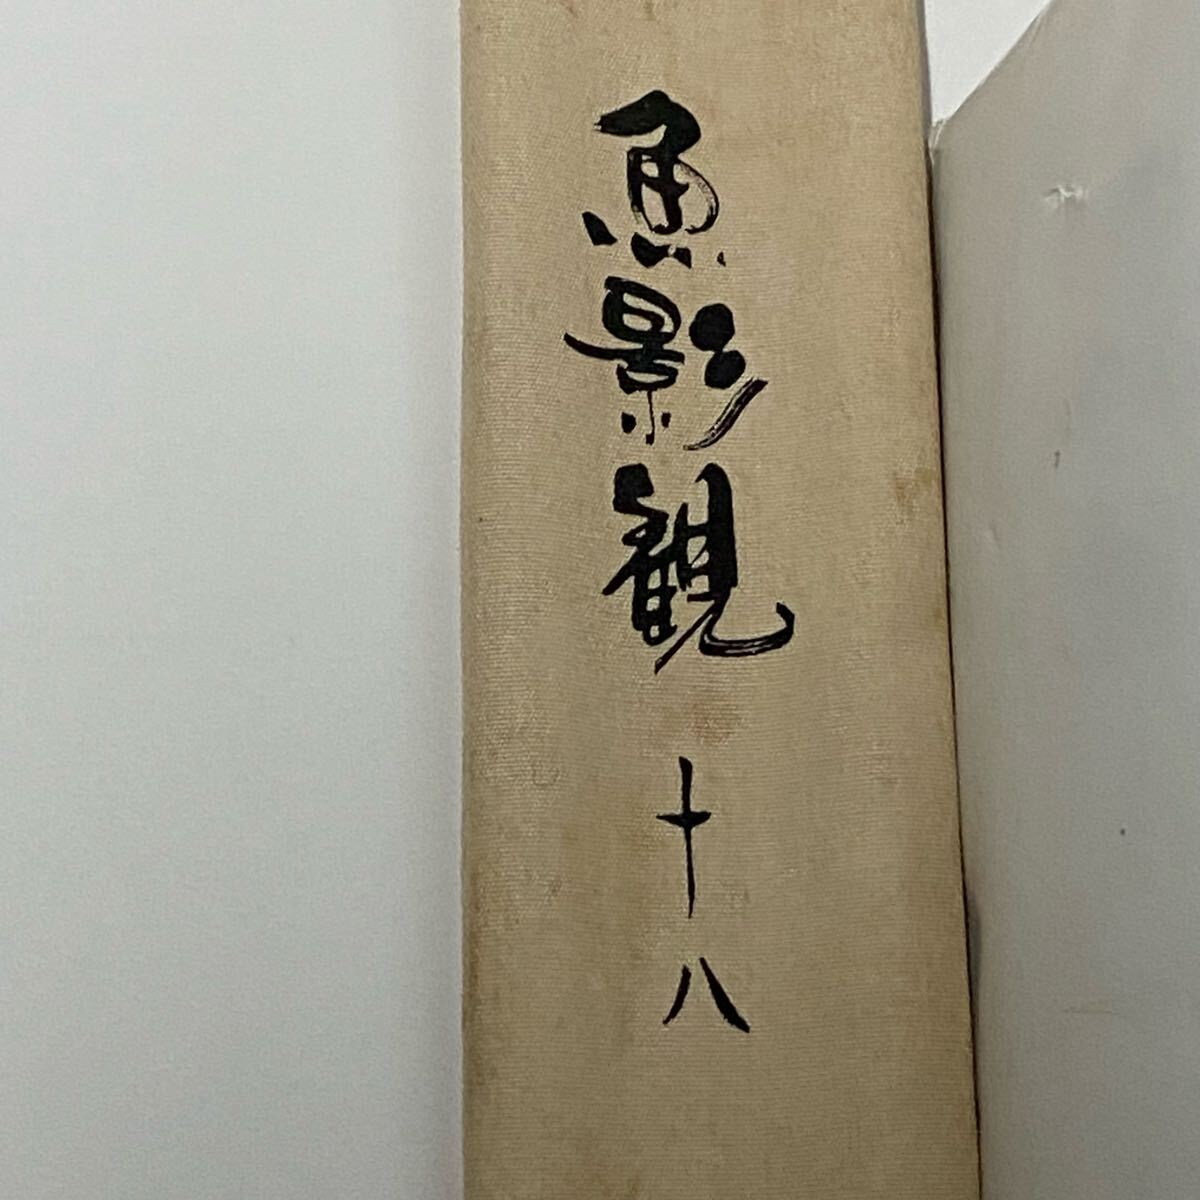 魚影観 十八